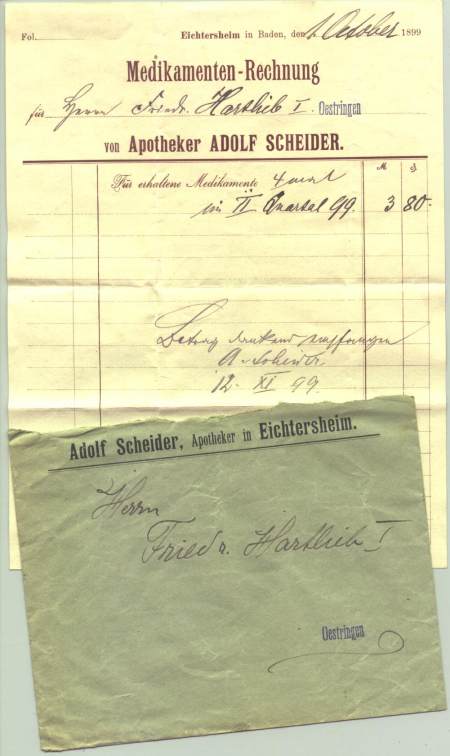 Fol. Eichtersheim in Baden, den 1. October 1899
Medikamenten-Rechnung
für Herrn Friedr. Hartlieb I. Oestringen
von Apotheker ADOLF SCHEIDER.
M ₰
Für erhaltene Medikamente
im II Quartal 99. 3 80.
Betrag dankend empfangen
A. Scheider.
12. XI 99.
Adolf Scheider, Apotheker in Eichtersheim.
Herrn
Friedr. Hartlieb I
Oestringen